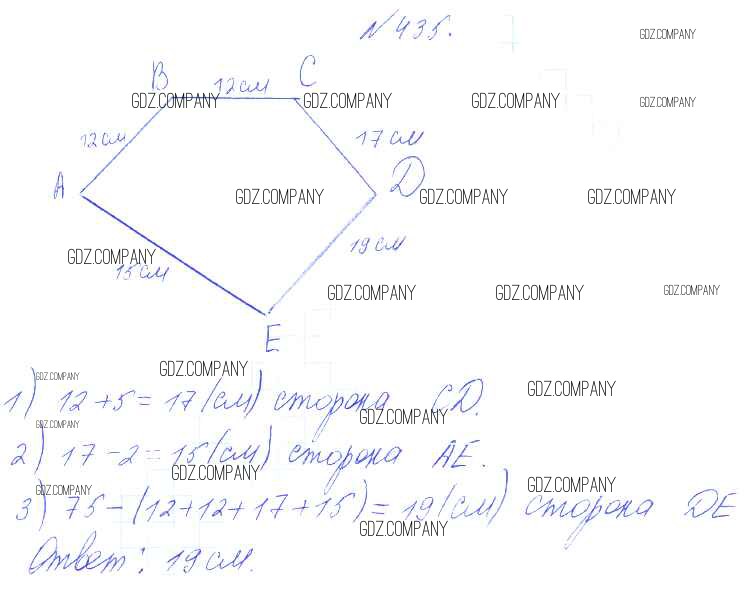 №435.
GDZ.COMPANY
B 12см C
GDZ.COMPANY GDZ.COMPANY GDZ.COMPANY GDZ.COMPANY
12см 17см
A D
GDZ.COMPANY GDZ.COMPANY GDZ.COMPANY
19см
GDZ.COMPANY
15см
GDZ.COMPANY GDZ.COMPANY GDZ.COMPANY
E
GDZ.COMPANY
GDZ.COMPANY
1) 12+5=17(см) сторона CD.
GDZ.COMPANY
GDZ.COMPANY
GDZ.COMPANY
2) 17-2=15(см) сторона AE.
GDZ.COMPANY
GDZ.COMPANY
GDZ.COMPANY
3) 75-(12+12+17+15)=19(см) сторона DE
GDZ.COMPANY
Ответ: 19см.